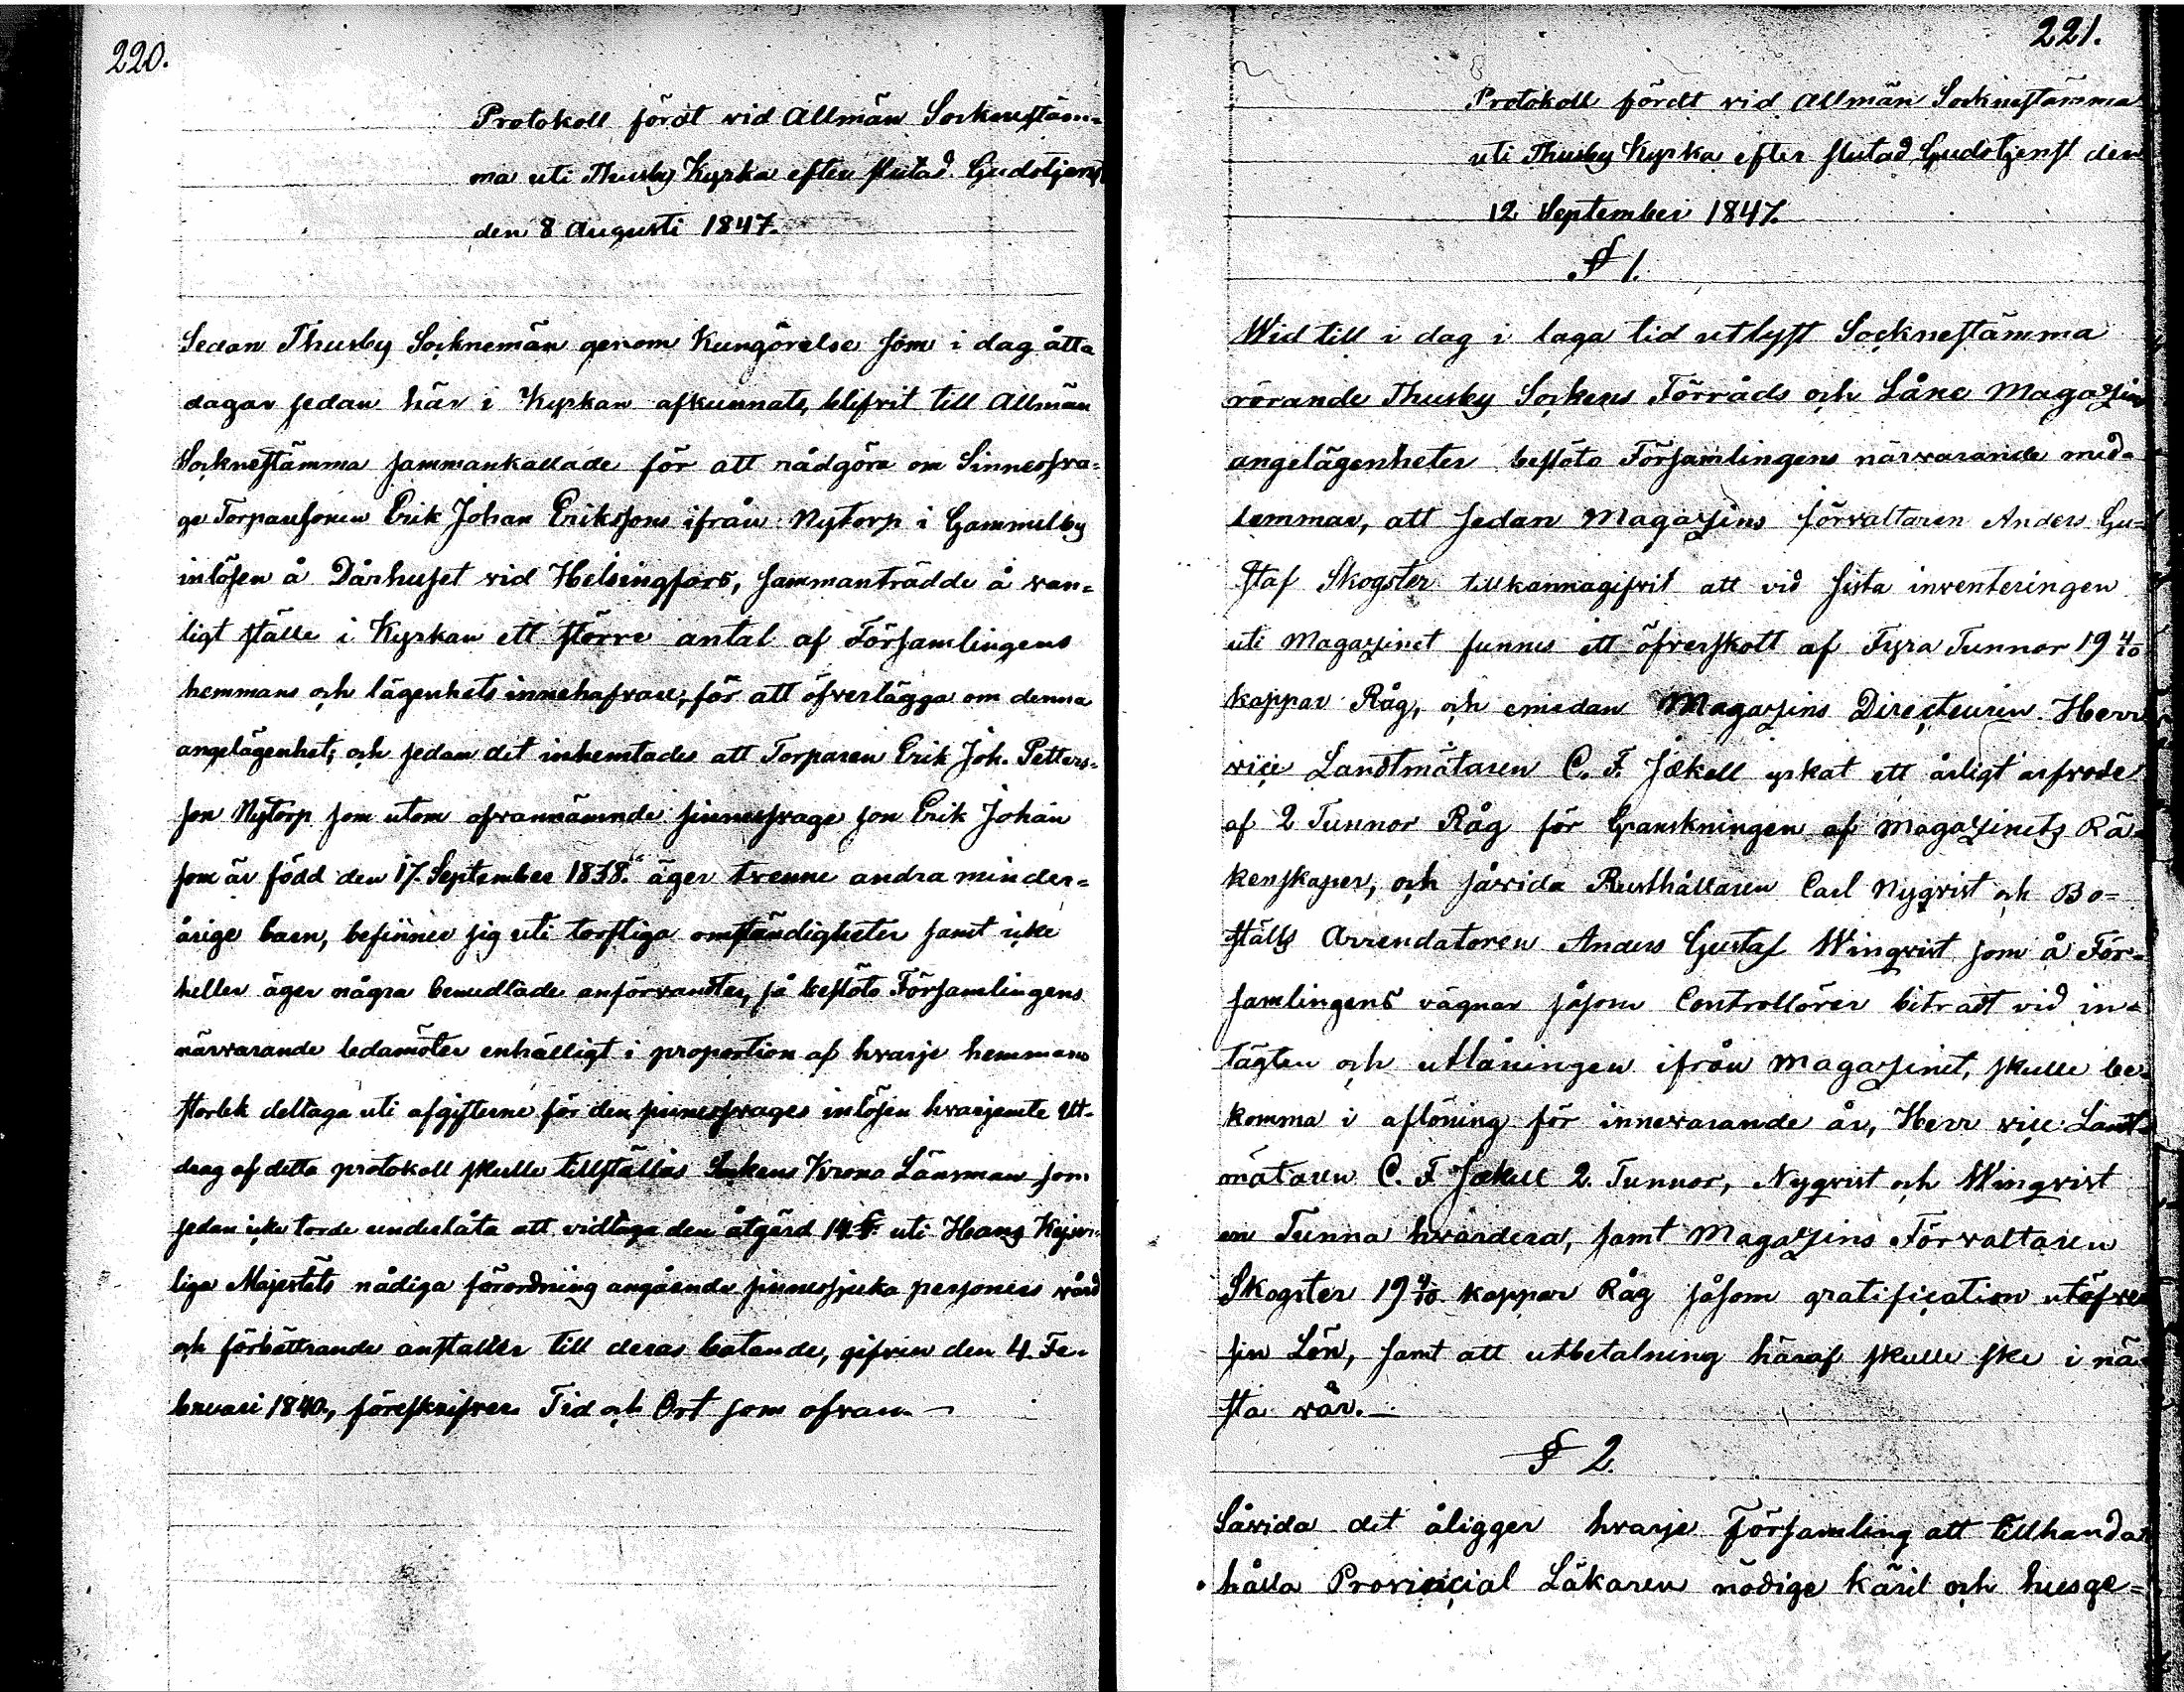 220.
Protokoll fördt vid Allmän Sockenstäm-
ma uti Thusby Kyrka efter slutad Gudstjenst
den 8 Augusti 1847.
Sedan Thusby Socknemän genom Kungörelse som i dag åtta
dagar sedan här i Kyrkan afkunnats, blifvit till Allmän
Socknestämma sammankallade för att rådgöra om Sinnessva-
ge Torparesonen Erik Johan Erikssons ifrån Nytorp i Gammelby
inlösen å Dårhuset vid Helsingfors, sammanträdde å van-
ligt ställe i Kyrkan ett större antal af Församlingens
hemmans och lägenhets innehafvare, för att öfverlägga om denna
angelägenhet; och sedan det inhemtades att Torparen Erik Joh. Petters-
son Nytorp som utom ofvannämnde sinnessvage son Erik Johan
som är född den 17. September 1838. äger trenne andra minder-
årige barn, befinner sig uti torftiga omständigheter samt icke
heller äger några bemedlade anförvandter, så beslöto Församlingens
närvarande ledamöter enhälligt i proportion af hvarje hemmans
storlek deltaga uti afgifterne för den sinnessvages inlösen hvarjemte Ut-
drag af detta protokoll skulle tillställas Sockens Krono Länsman som
sedan icke torde underlåta att vidtaga den åtgärd 14 §. uti Hans Kejser-
liga Majestäts nådiga förordning angående sinnessjuka personers vård
och förbättrande anstalter till deras botande, gifven den 4 Fe-
bruari 1840, föreskrifver. Tid och Ort som ofvan.
221.
Protokoll fördt vid Allmän Socknestämma
uti Thusby Kyrka efter slutad Gudstjenst den
12 September 1847.
§ 1.
Wid till i dag i laga tid utlyst Socknestämma
rörande Thusby Sockens Förråds och Låne Magazins
angelägenheter beslöto Församlingens närvarande med-
lemmar, att sedan Magazins förvaltaren Anders Gu-
staf Skogster tillkannagifvit att vid sista inventeringen
uti Magazinet funnes ett öfverskott af Fyra Tunnor 19 4/10
kappar Råg, och emedan Magazins Directeuren Herr
vice Landtmätaren C. F. Jækell yrkat ett årligt arfvode
af 2 Tunnor Råg för Granskningen af Magazinets Rä-
kenskaper, och såvida Rusthållaren Carl Nyqvist och Bo-
ställs Arrendatoren Anders Gustaf Winqvist som å För-
samlingens vägnar såsom Controllörer biträdt vid in-
tägten och utlåningen ifrån Magazinet, skulle be-
komma i aflöning för innevarande år, Herr vice Landt-
mätaren C. F Jækell 2. Tunnor, Nyqvist och Winqvist
en Tunna hvardera, samt Magazins Förvaltaren
Skogster 19 4/10 kappar Råg såsom gratification utöfver
sin Lön, samt att utbetalning häraf skulle ske i nä-
sta vår.
§ 2.
Såvida det åligger hvarje Församling att tillhanda-
hålla Provincial Läkaren nödige käril och husge-